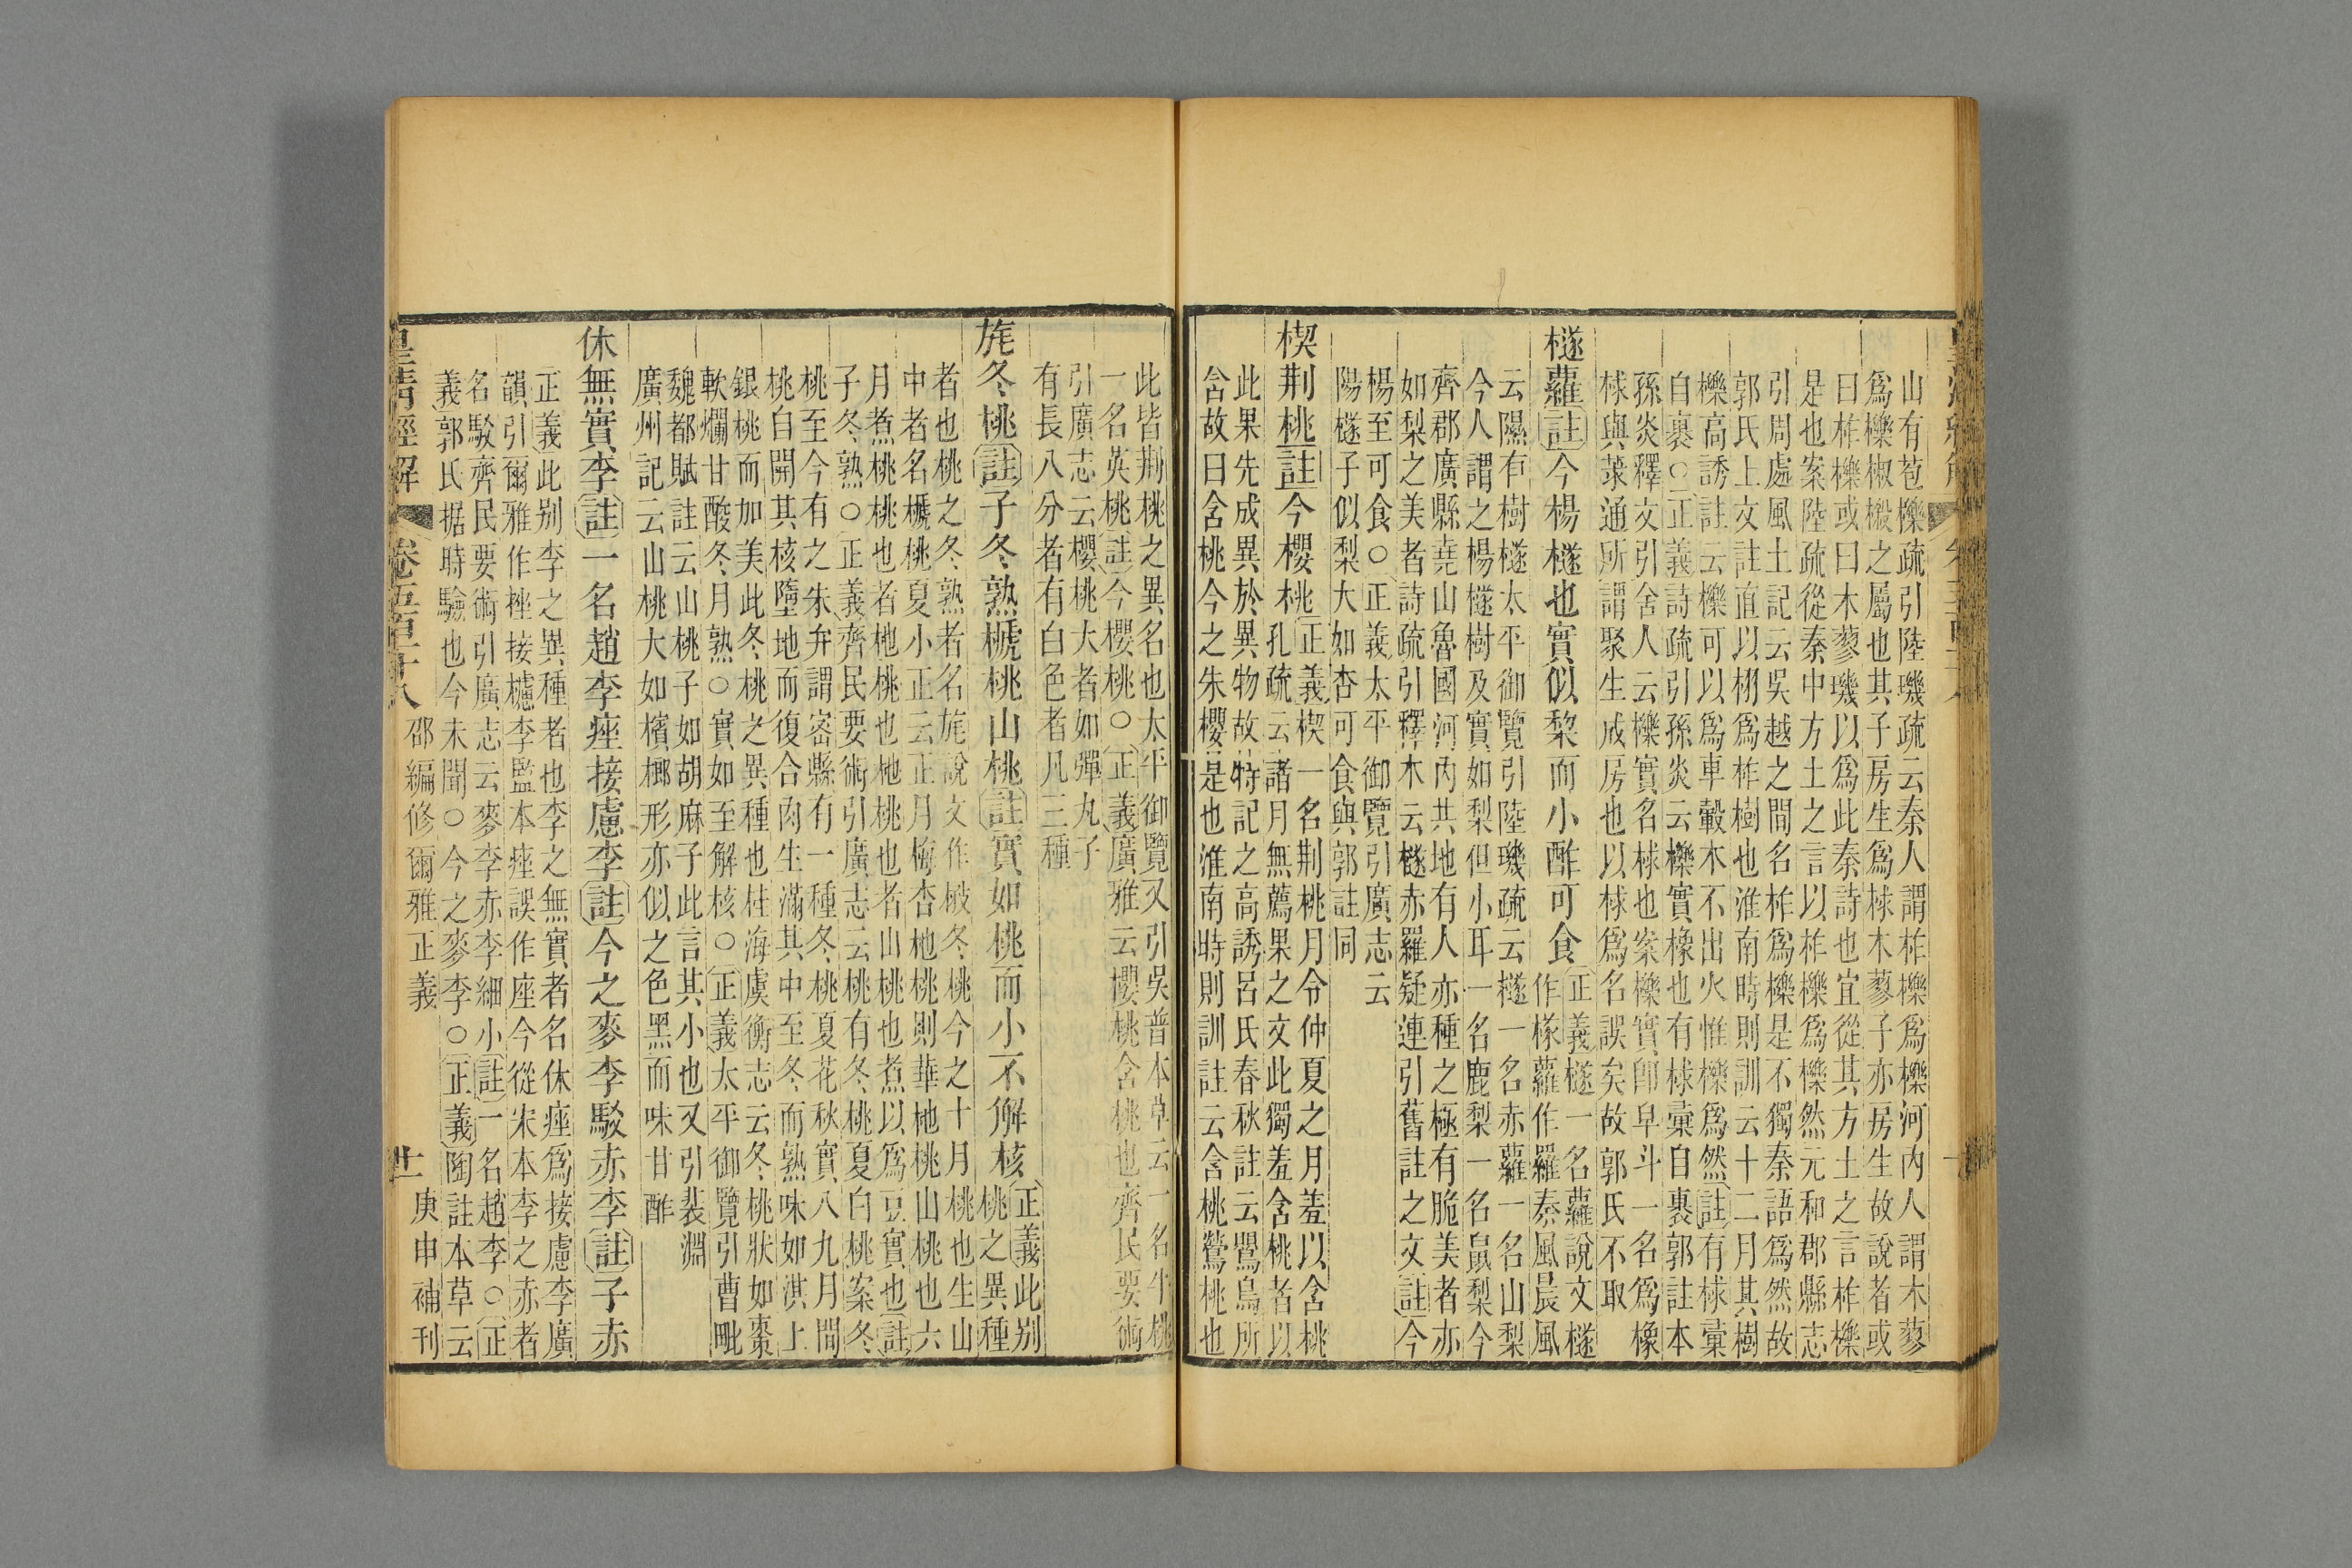 山有苞櫟疏引陸璣疏云秦人謂柞櫟爲櫟河內人謂木蓼
爲櫟椒樧之屬也其子房生爲梂木蓼子亦房生故說者或
曰柞櫟或曰木蓼璣以爲此秦詩也宜從其方土之言柞櫟
是也案陸疏從秦中方土之言以柞櫟爲櫟然元和郡縣志
引周處風土記云吳越之間名柞爲櫟是不獨秦語爲然故
郭氏上文註直以栩爲柞樹也淮南時則訓云十二月其樹
櫟高誘註云櫟可以爲車轂木不出火惟櫟爲然註有梂彙
自裹○正義詩疏引孫炎云櫟實橡也有梂彙自裹郭註本
孫炎釋文引舍人云櫟實名梂也案櫟實卽皁斗一名爲橡
梂與莍通所謂聚生成房也以梂爲名誤矣故郭氏不取
檖蘿註今楊檖也實似梨而小酢可食
正義檖一名蘿說文檖
作㰞蘿作羅秦風晨風
云隰有樹檖太平御覽引陸璣疏云檖一名赤蘿一名山梨
今人謂之楊檖樹及實如梨但小耳一名鹿梨一名鼠梨今
齊郡廣縣堯山魯國河內共地有人亦種之極有脆美者亦
如梨之美者詩疏引釋木云檖赤羅疑連引舊註之文註今
楊至可食○正義太平御覽引廣志云
陽檖子似梨大如杏可食與郭註同
楔荆桃註今櫻桃
正義楔一名荆桃月令仲夏之月羞以含桃
孔疏云諸月無薦果之文此獨羞含桃者以
此果先成異於異物故特記之高誘呂氏春秋註云鸎鳥所
含故曰含桃今之朱櫻是也淮南時則訓註云含桃鶯桃也
此皆荆桃之異名也太平御覽又引吳普本草云一名牛桃
一名英桃註今櫻桃○正義廣雅云櫻桃含桃也齊民要術
引廣志云櫻桃大者如彈丸子
有長八分者有白色者凡三種
旄冬桃註子冬熟榹桃山桃註實如桃而小不解核
正義此别
桃之異種
者也桃之冬熟者名旄說文作樧冬桃今之十月桃也生山
中者名榹桃夏小正云正月梅杏杝桃則華杝桃山桃也六
月煮桃桃也者杝桃也杝桃也者山桃也煮以爲豆實也註
子冬熟○正義齊民要術引廣志云桃有冬桃夏白桃案冬
桃至今有之朱弁謂密縣有一種冬桃夏花秋實八九月間
桃白開其核墮地而復合肉生滿其中至冬而熟味如淇上
銀桃而加美此冬桃之異種也桂海虞衡志云冬桃狀如棗
軟爛甘酸冬月熟○實如至解核○正義太平御覽引曹毗
魏都賦註云山桃子如胡麻子此言其小也又引裴淵
廣州記云山桃大如檳榔形亦似之色黑而味甘酢
休無實李註一名趙李痤接慮李註今之麥李駁赤李註子赤
正義此别李之異種者也李之無實者名休痤爲接慮李廣
韻引爾雅作桽接櫖李監本痤誤作座今從宋本李之赤者
名駁齊民要術引廣志云麥李赤李細小註一名趙李○正
義郭氏据時驗也今未聞○今之麥李○正義陶註本草云
皇清經解 卷五百十八 邵編修爾雅正義 庚申補刊